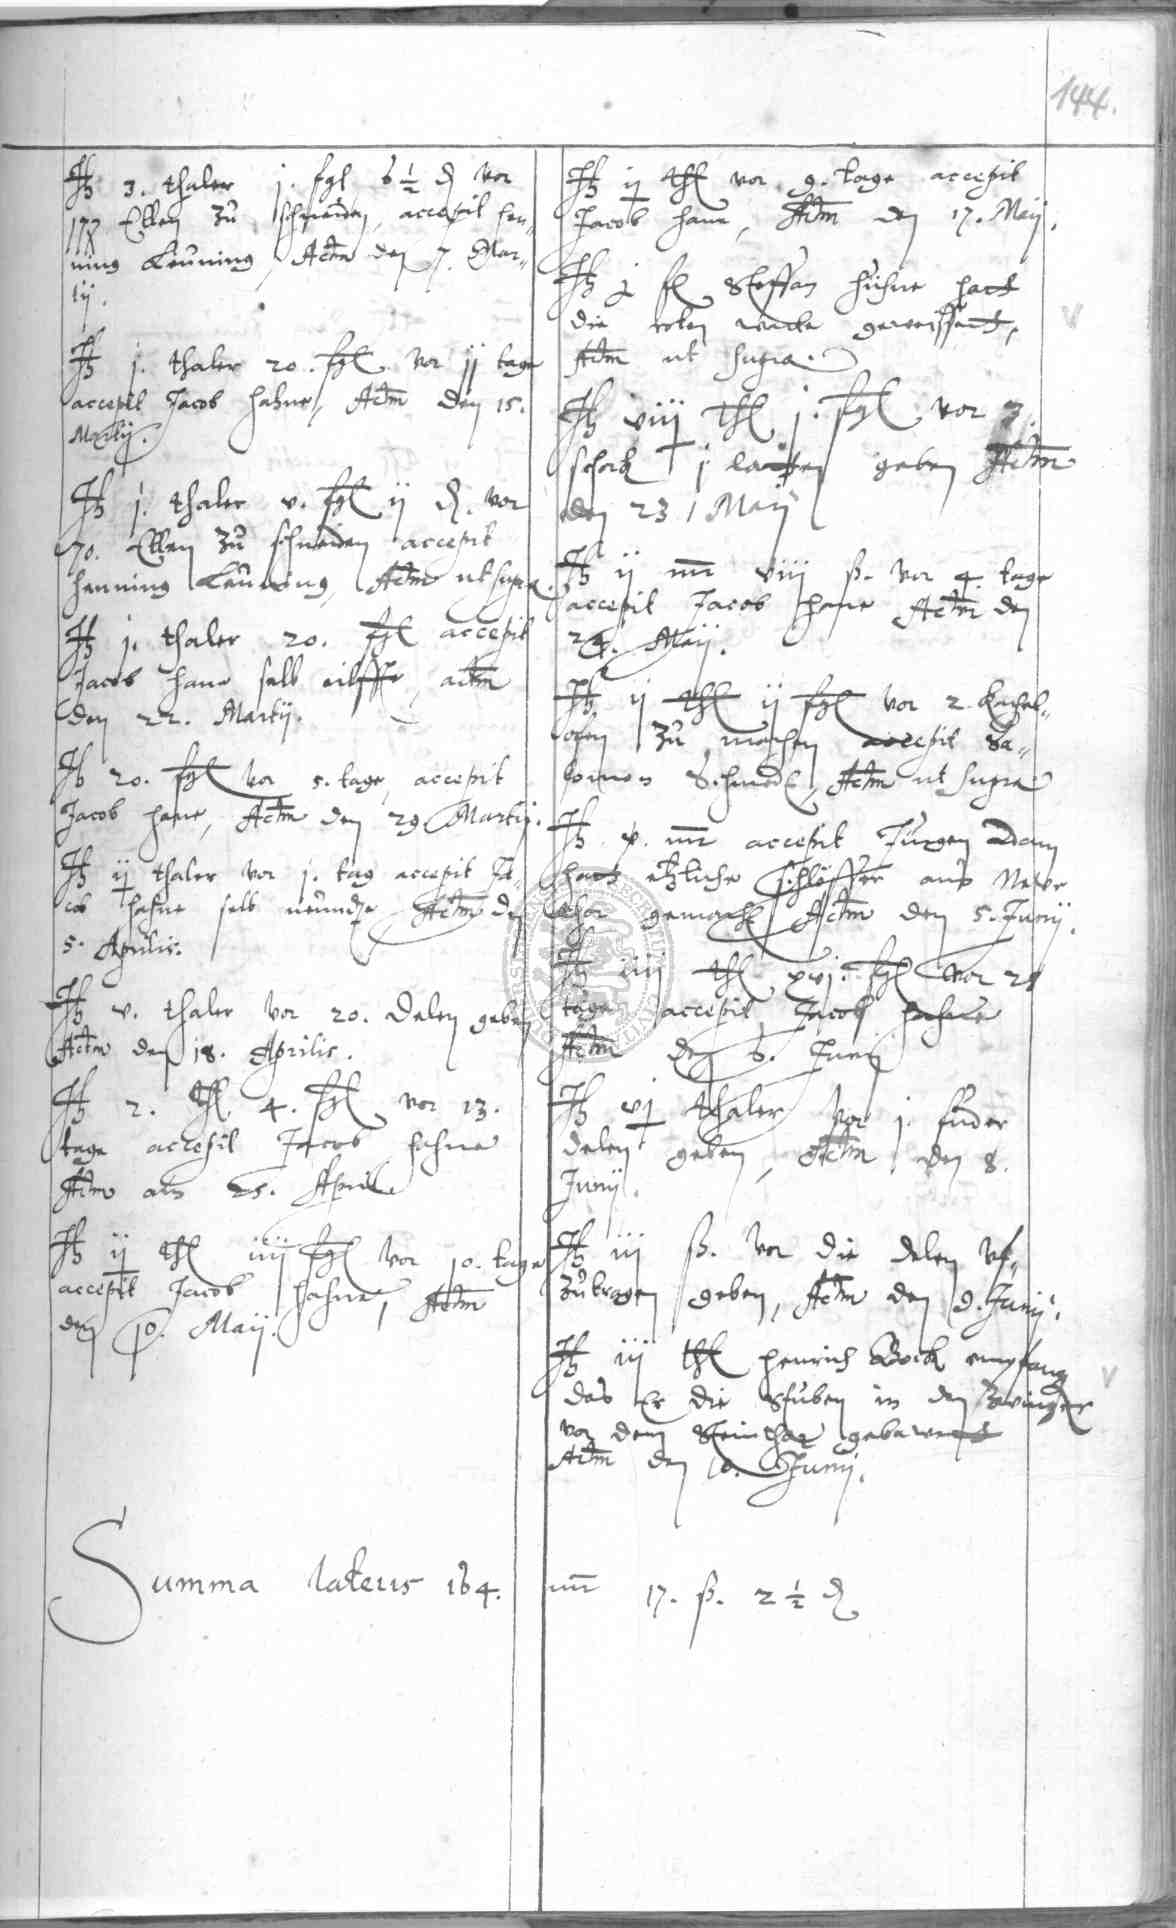 144.
Itz 3. thaler j. fgl 6 1/2 d vor
177 Ellen zu schneiden, accepit Hen-
ning Leuning, Actm den 7. Mar-
tij.
Itz j. thaler 20. fgl. vor jj tage
accepit Jacob Hahne, Actm den 15.
Martij.
Itz j. thaler v. fgl ij d. vor
70. Ellen zu schneiden accepit
Henning Leuning, Actm ut supra.
Itz j. thaler 20. fgl accepit
Jacob Hane selb eilffte, actm
den 22. Martij.
Itz 20. fgl vor 5. tage, accepit
Jacob Hane, Actm den 29 Martij.
Itz ij thaler vor j. tag accepit Ja-
cob Hahne selb neundte Actm den
5. Aprilis.
Itz v. thaler vor 20. Delen geben
Actm den 18. Aprilis.
Itz 2. thl 4. fgl vor 13.
tage accepit Jacob Hahne
Actm am 25. April
Itz ij thl iiij fgl vor 10. tage
accepit Jacob Hahne, Actm
den 10. Maij.
Itz ij thl vor 9. tage accepit
Jacob Hane, Actm den 17. Maij.
Itz fl Steffan Hühne hatt
die gewissert,
Actm ut supra.
Itz viij thl j. fgl vor 3.
schock j geben Actm
den 23 Maij
Itz ij mr viij ß. vor 4. tage
accepit Jacob Hane Actm den
24. Maij.
Itz ij thl ij fgl vor 2. Kachel-
ofen zu machen accepit Sa-
lomon Schmedt, Actm ut supra
Itz x. mr accepit Jürgen Adam
hatt etzliche schlösser ans Newe
thor gemacht Actm den 5. Junij.
Itz iiij thl xvj. fgl vor 21
tage accepit Jacob Hahne
Actm den 6. Junij
Itz vj thaler vor j. fuder
delen geben, Actm den 8.
Junij.
Itz iij ß. vor die delen uf-
zutragen geben, Actm den 9. Junij.
Itz iij thl Henrich Bock empfang
das Er die Stuben in den Zwinger
vor dem Steinthor gebawet
Actm den 10. Junij.
Summa lateris 164. mr 17. ß. 2 1/2 d